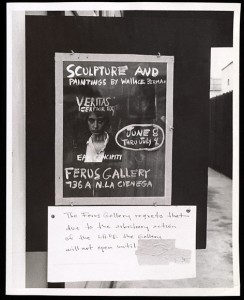 SCULPTURE AND
PAINTINGS BY WALLACE BERMAN
VERITAS
JUNE 8
THRU JULY
FERUS GALLERY
736 A N. LA CIENEGA
The Ferus Gallery regrets that
due to the arbitrary action
of the the Gallery
will not open until